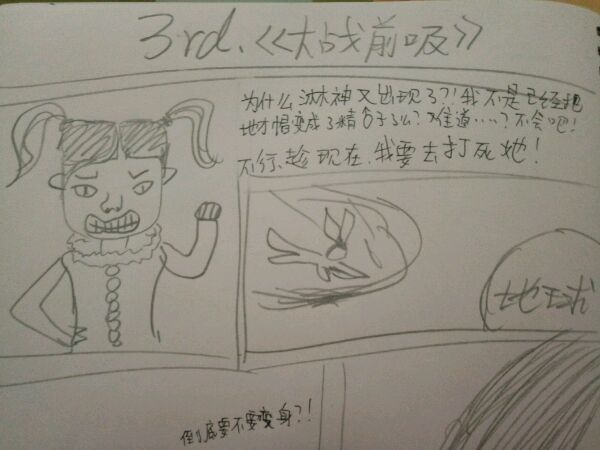 3rd.《大战前吸》
为什么淋神又出现了?!我不是已经把
她才帽变成了精合子了么?难道……?不会吧!
不行,趁现在,我要去打死她!
地球
倒底要不要变身?!